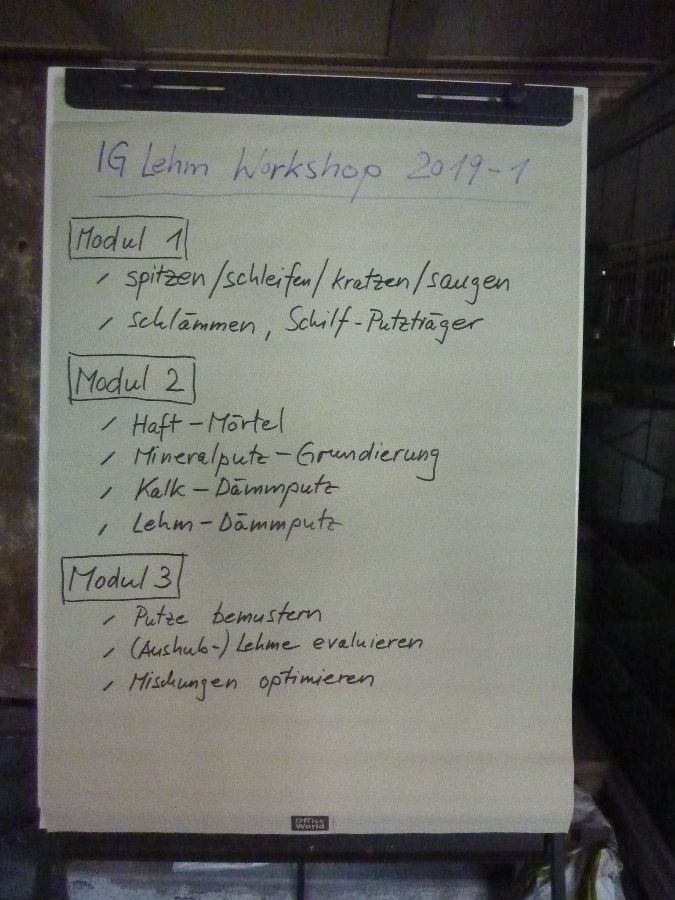 IG Lehm Workshop 2019-1
Modul 1
spitzen/schleifen/kratzen/saugen
schlämmen, Schilf-Putzträger
Modul 2
Haft-Mörtel
Mineralputz-Grundierung
Kalk-Dämmputz
Lehm-Dämmputz
Modul 3
Putze bemustern
(Aushub-) Lehme evaluieren
Mischungen optimieren
Office
World